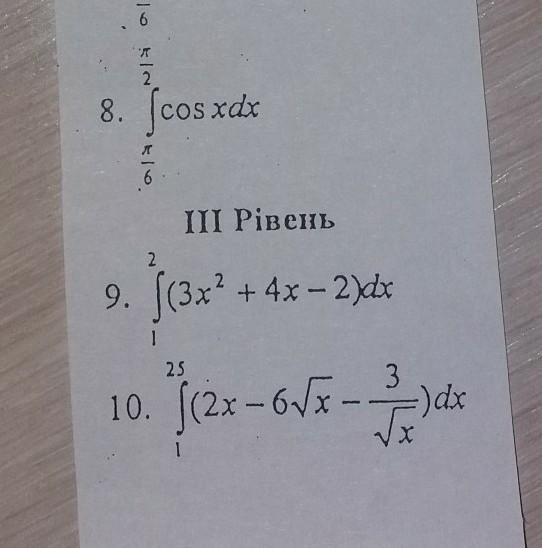 6
8. ∫_{π/6}^{π/2} cos xdx
III Рівень
9. ∫_{1}^{2} (3x² + 4x − 2)dx
10. ∫_{1}^{25} (2x − 6√x − 3/√x)dx